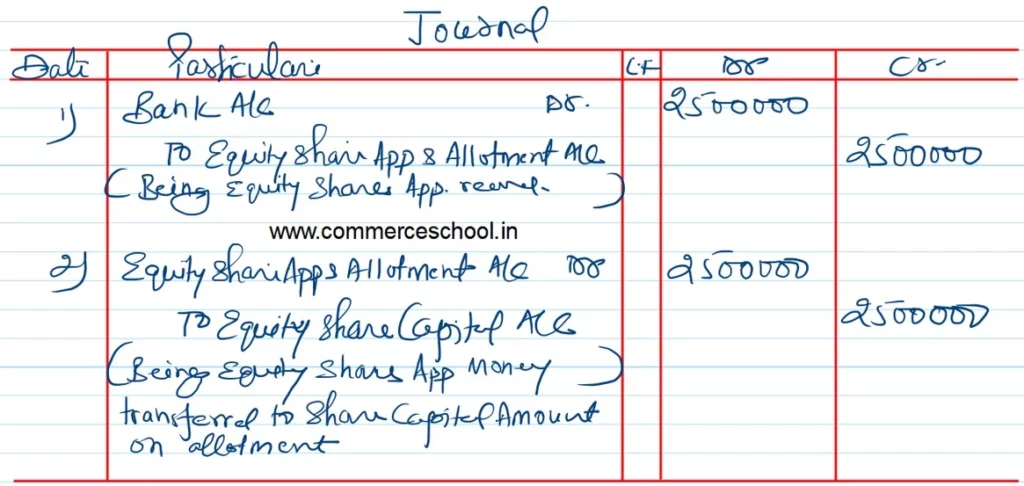 Journal
Date Particulars L.F Dr Cr.
1) Bank A/c Dr. 2500000
To Equity Share App & Allotment A/c 2500000
(Being Equity Shares App. received.)
www.commerceschool.in
2) Equity Share App & Allotment A/c Dr 2500000
To Equity Share Capital A/c 2500000
(Being Equity Share App Money)
transferred to Share Capital Amount
on allotment